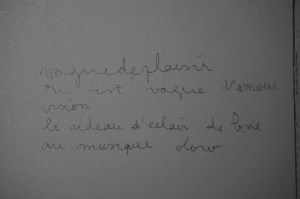 vaguedeplaisir
on est vague d'amour
le rideau d'eclair de lune
au musique slow